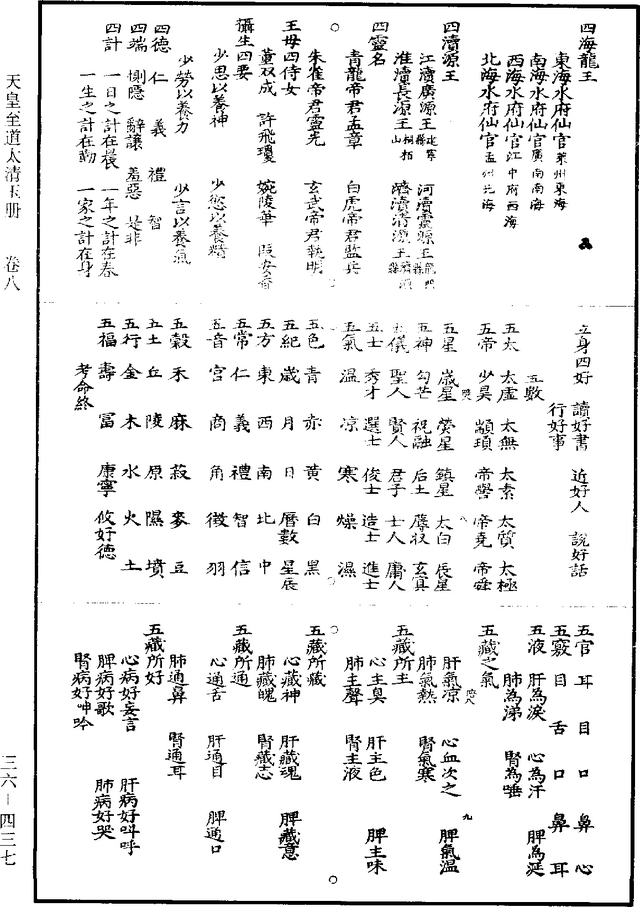 四海龍王
東海水府仙官萊州東海
南海水府仙官廣南南海
西海水府仙官江中府西海
北海水府仙官孟州北海
四瀆源王
江瀆廣源王 河瀆靈源王
淮瀆長源王 濟瀆清源王
四靈名
青龍帝君孟章 白虎帝君監兵
朱雀帝君靈光 玄武帝君執明
王母四侍女
董双成 許飛瓊 婉陵華 段安香
攝生四要
少思以養神 少慾以養精
少勞以養力 少言以養氣
四德 仁 義 禮 智
四端 惻隱 辭讓 羞惡 是非
四計 一日之計在晨 一年之計在春
一生之計在勤 一家之計在身
立身四好 讀好書 近好人 說好話
行好事
五數
五太 太虛 太無 太素 太質 太極
五帝 少昊 顓頊 帝嚳 帝堯 帝舜
五星 歲星 熒星 鎮星 太白 辰星
五神 勾芒 祝融 后土 蓐收 玄真
五儀 聖人 賢人 君子 士人 庸人
五士 秀才 選士 俊士 造士 進士
五氣 溫 凉 寒 燥 濕
五色 青 赤 黃 白 黑
五紀 歲 月 日 曆數 星辰
五方 東 西 南 北 中
五常 仁 義 禮 智 信
五音 宮 商 角 徵 羽
五穀 禾 麻 菽 麥 豆
五土 丘 陵 原 隰 墳
五行 金 木 水 火 土
五福 壽 富 康寧 攸好德
考命終
五官 耳 目 口 鼻 心
五竅 目 舌 口 鼻 耳
五液 肝為淚 心為汗 脾為涎
肺為涕 腎為唾
五藏之氣
肝氣凉 心血次之 脾氣溫
肺氣熱 腎氣寒
五藏所主
心主臭 肝主色 脾主味
肺主聲 腎主液
五藏所藏
心藏神 肝藏魂 脾藏意
肺藏魄 腎藏志
五藏所通
心通舌 肝通目 脾通口
肺通鼻 腎通耳
五藏所好
心病好妄言 肝病好叫呼
脾病好歌 肺病好哭
腎病好呻吟
天皇至道太清玉册 卷八
三六—四三七